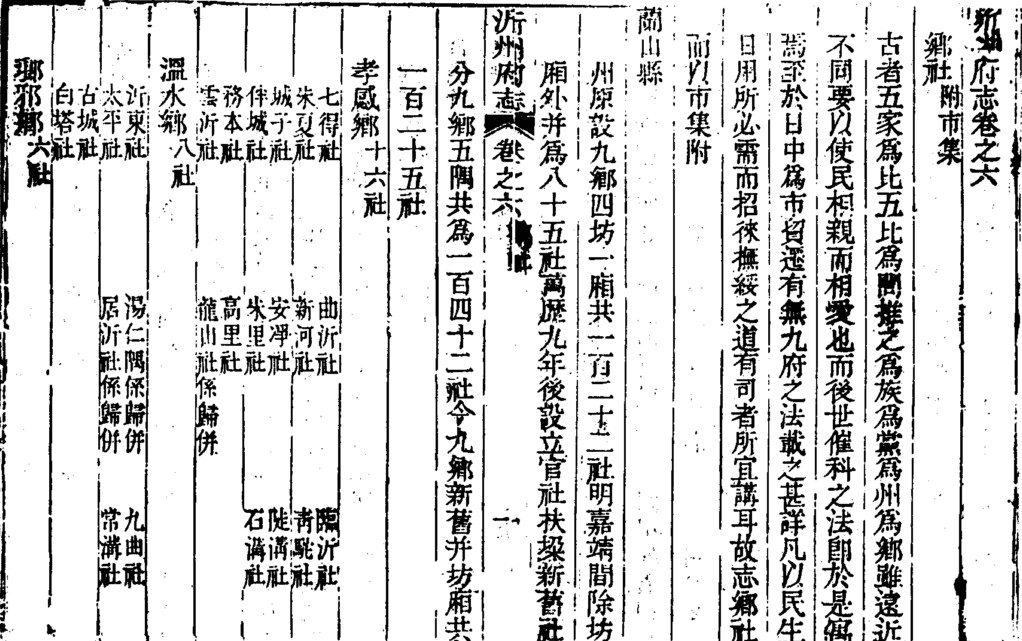 沂州府志卷之六
鄉社附市集
古者五家為比五比為閭推之為族為黨為州為鄉雖遠近
不同要以使民相親而相愛也而後世催科之法卽於是寓
焉至於日中為市貿遷有無九府之法載之甚詳凡以民生
日用所必需而招徠撫綏之道有司者所宜講耳故志鄉社
而以市集附
蘭山縣
州原設九鄉四坊一廂共一百二十二社明嘉靖間除坊
廂外并為八十五社萬歷九年後設立官社扶垜新舊社
沂州府志 卷之六 鄉社 一
分九鄉五隅共為一百四十二社今九鄉新舊并坊廂共
一百二十五社
孝感鄉十六社
七得社 曲沂社 臨沂社
朱夏社 新河社 靑駝社
城子社 安凈社 陡溝社
伴城社 朱里社 石溝社
務本社 高里社
雲沂社 龍山社係歸併
溫水鄉八社
沂東社 湯仁隅係歸併 九曲社
太平社 居沂社係歸併 常溝社
古城社
白塔社
瑯琊鄉六社